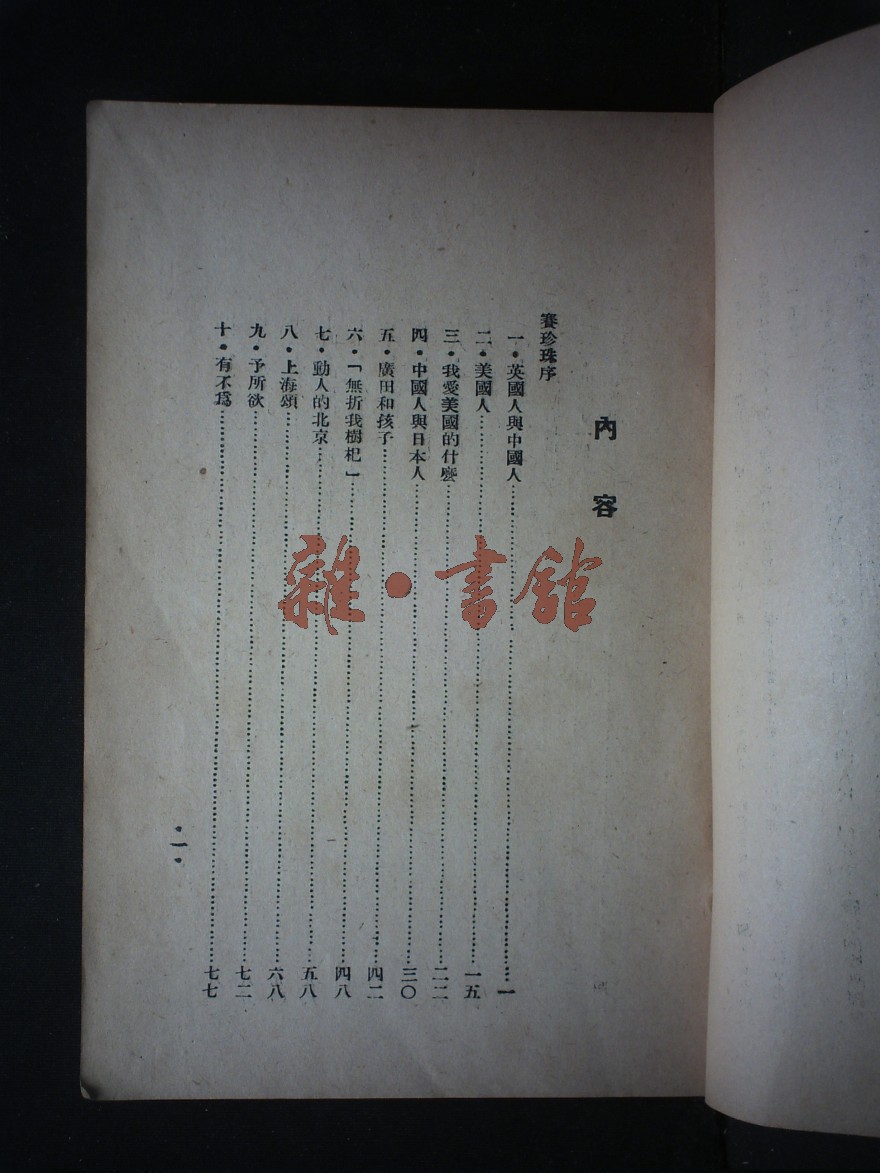 內容
賽珍珠序
一・英國人與中國人……一
二・美國人……一五
三・我愛美國的什麼……二二
四・中國人與日本人……三〇
五・廣田和孩子……四二
六・「無折我樹杞」……四八
七・動人的北京……五八
八・上海頌……六八
九・予所欲……七二
十・有不爲……七七
・一・
雜・書館